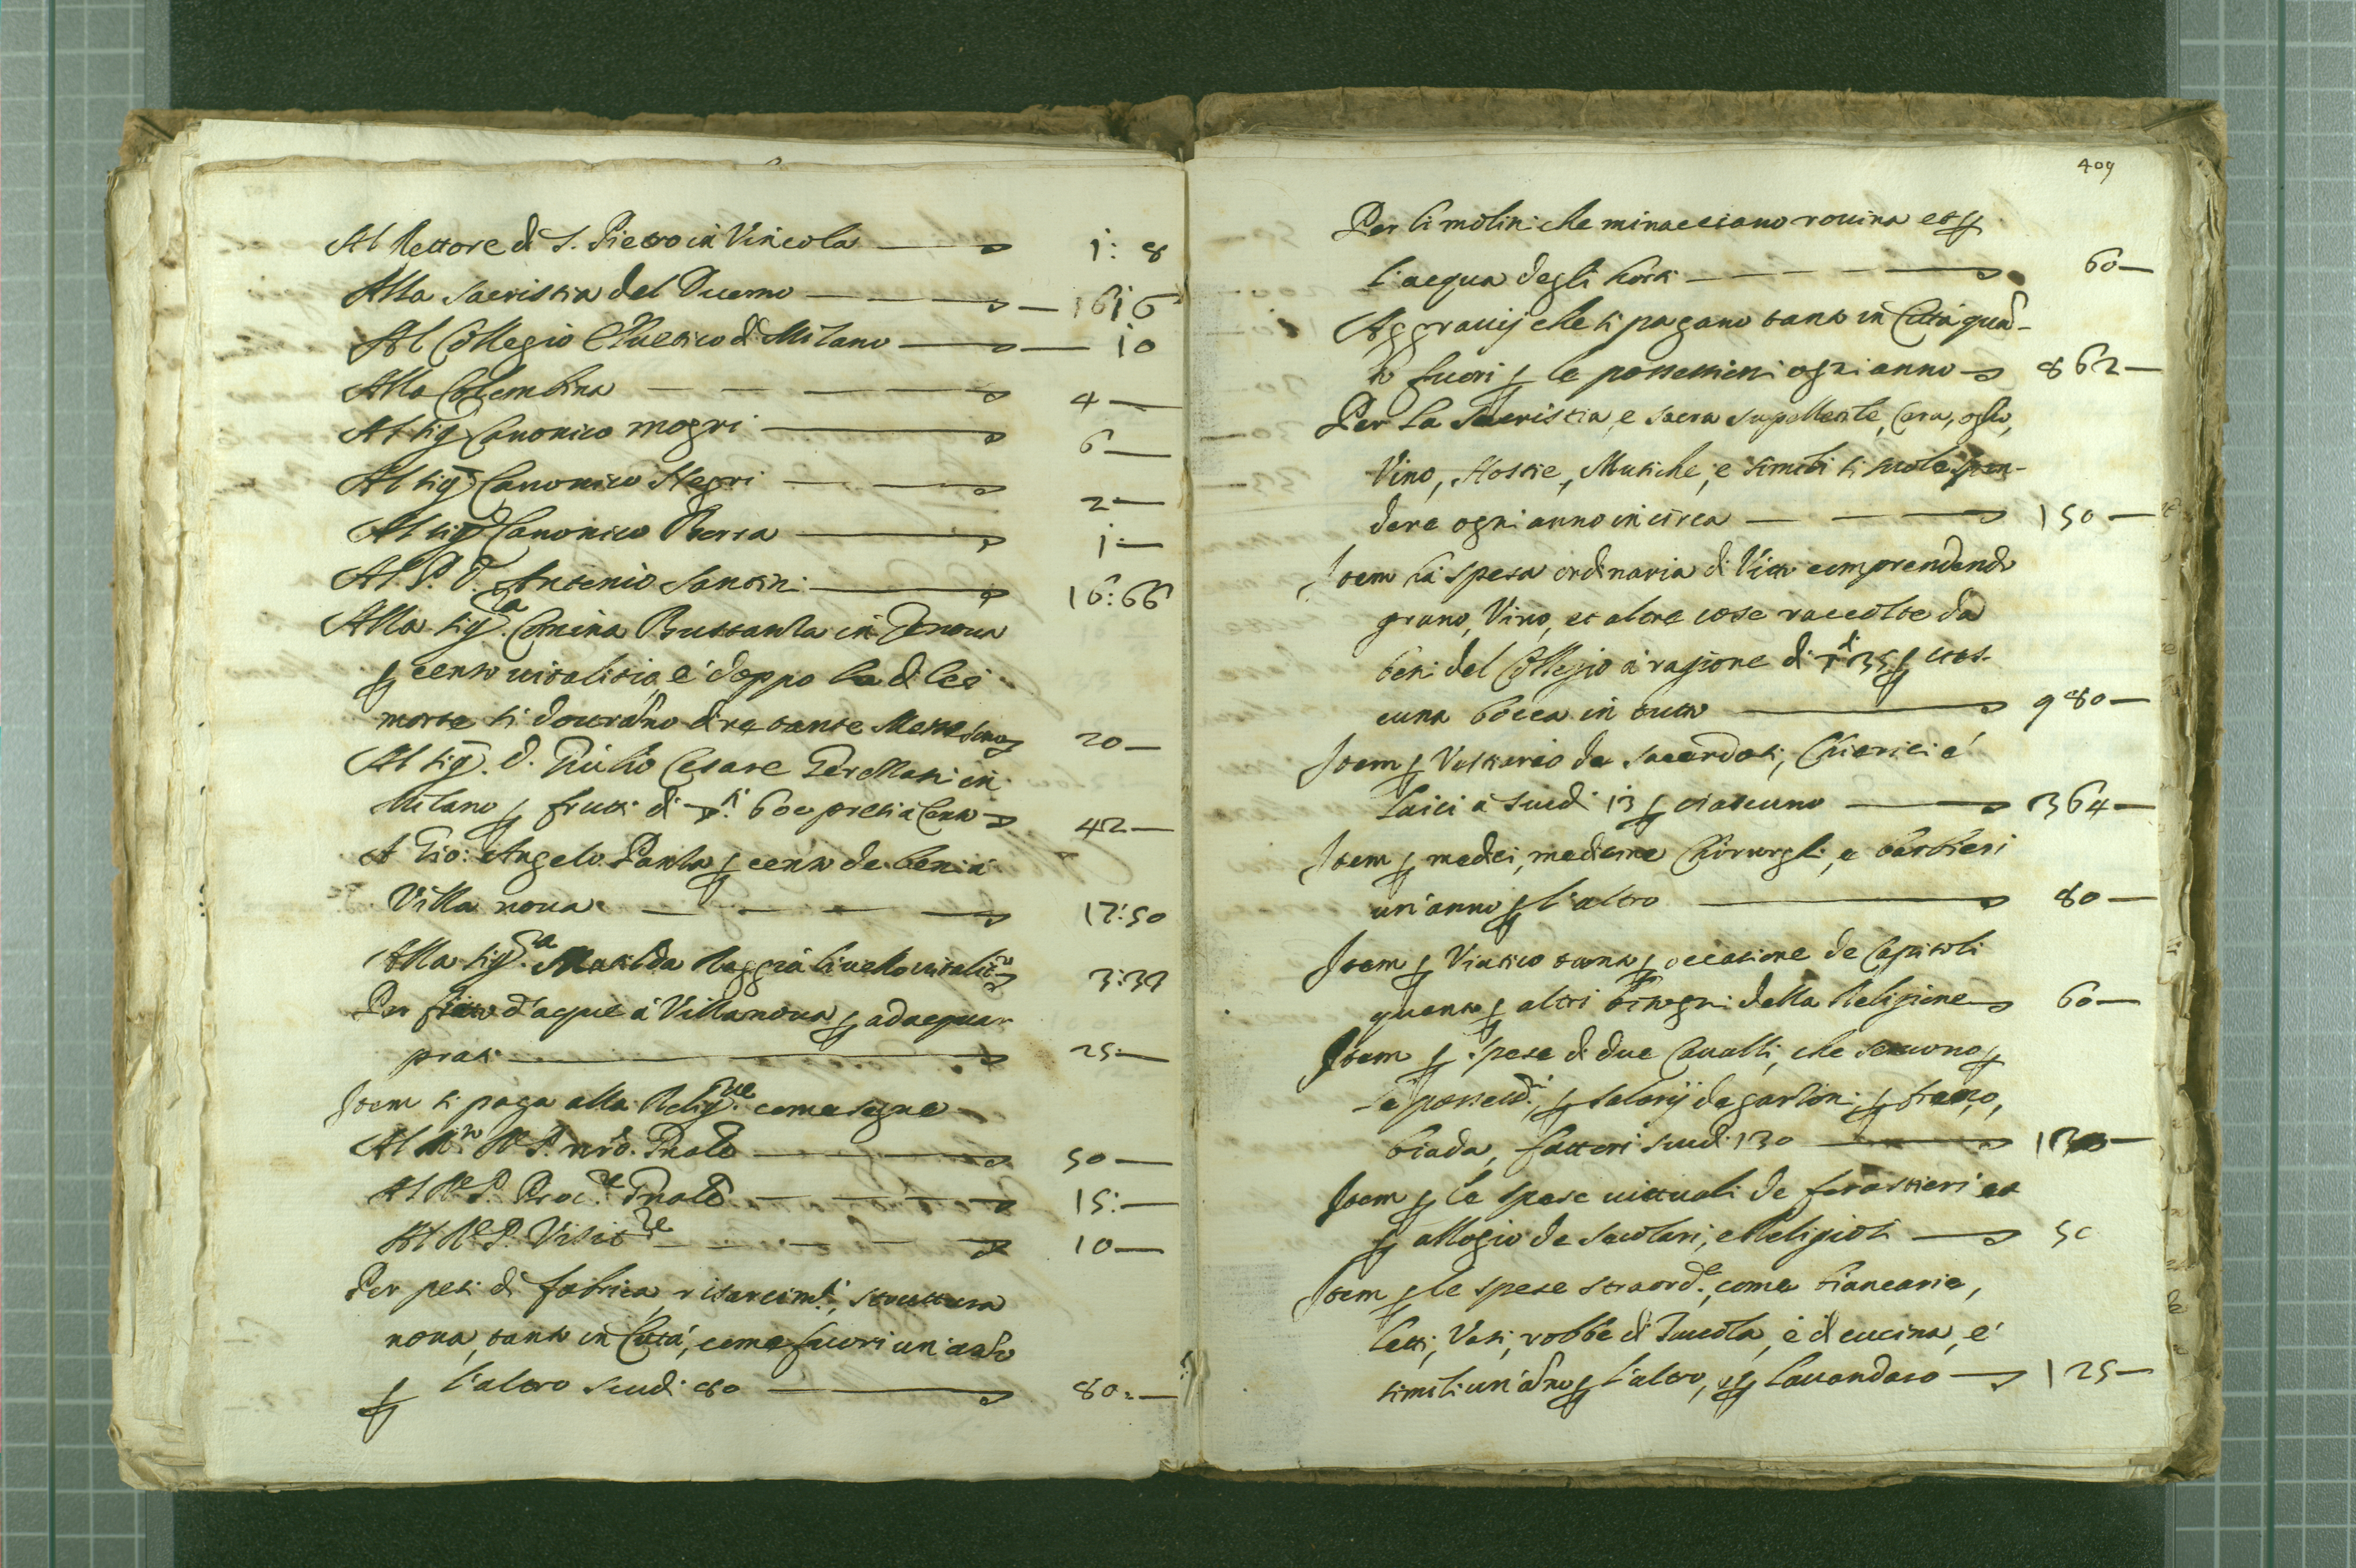 Al Rettore di S. Pietro in Vincola 1: 8
Alla Sacristia del Duomo 16: 6
Al Collegio Elvetico di Milano 10
Alla Colombina 4
Al Sig Canonico mogri 6
Al Sig Canonico Negri 2
Al Sig Canonico Bersa 1
Al P. D. Antonio Santini 16:66
Alla Sig.a Comina Bussanta in Genova
p censo vitalitio, e doppo la di lei
morte si dovranno dire tante Messe
20
Al Sig. D. Giulio Cesare in
Milano p frutti di 600 presi à Censo 42
A Gio: Angelo Panta p censo de beni à
Villa nova 17:50
Alla Sig.a Matilda Raggia livello vitalit.o 3:39
Per fitto d'aque à Villanova p adaquar
prati 25
Item si paga alla Relig.ne come segue
Al R.mo P. nro Gnale 50
Al R. P. Proc.re Gnale 15
Al R. P. Visit.re 10
Per pesi di fabrica, risarcim.ti, struttura
nova, tanto in Città, come fuori un'anno
p l'altro scudi 80 80
409
Per li molini che minacciano rovina et p
l'acqua degli horti 60
Aggravij che si pagano tanto in Città quan-
to fuori p le possessioni ogni anno 862
Per la Sacristia, e sacra supellettile, Cera, oglio,
Vino, Hostie, Musiche, e simili si suole spen-
dere ogni anno in circa 150
Item la spesa ordinaria di Vitto comprendendo
grano, Vino, et altre cose raccolte da
beni del Collegio à ragione di 35 p cias-
cuna bocca in tutto 980
Item p Vestiario de Sacerdoti, Chierici é
Laici à scudi 13 p ciascuno 364
Item p medici, medicine Chirurghi, e barbieri
un'anno p l'altro 80
Item p Viatico tanto p occasione de Capitoli
quanto p altri bisogni della Religione 60
Item p spese di due Cavalli, che servono p
le possess.ni p salarij de garzoni p fieno,
biada, fattori scudi 130 130
Item p le spese vittuali de forastieri et
p allogio de secolari, e Religiosi 50
Item p le spese straord.e, come biancarie,
letti, Vasi, robbe di Tavola, è di cucina, e'
simili un'anno p l'altro, e p Lavandaro 125